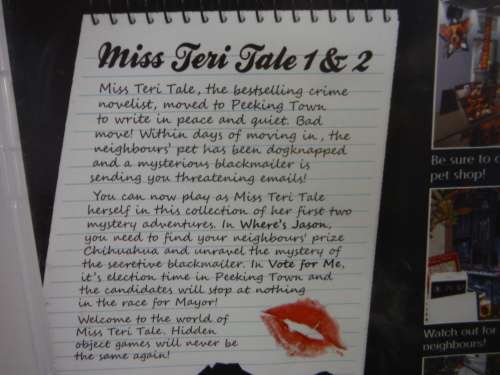 Miss Teri Tale 1 & 2
Miss Teri Tale, the bestselling crime
novelist, moved to Peeking Town
to write in peace and quiet. Bad
move! Within days of moving in, the
neighbours' pet has been dognapped
and a mysterious blackmailer is
sending you threatening emails!
You can now play as Miss Teri Tale
herself in this collection of her first two
mystery adventures. In Where's Jason,
you need to find your neighbours' prize
Chihuahua and unravel the mystery of
the secretive blackmailer. In Vote for Me,
it's election time in Peeking Town and
the candidates will stop at nothing
in the race for Mayor!
Welcome to the world of
Miss Teri Tale. Hidden
object games will never be
the same again!
Be sure to
pet shop!
Watch out for
neighbours!